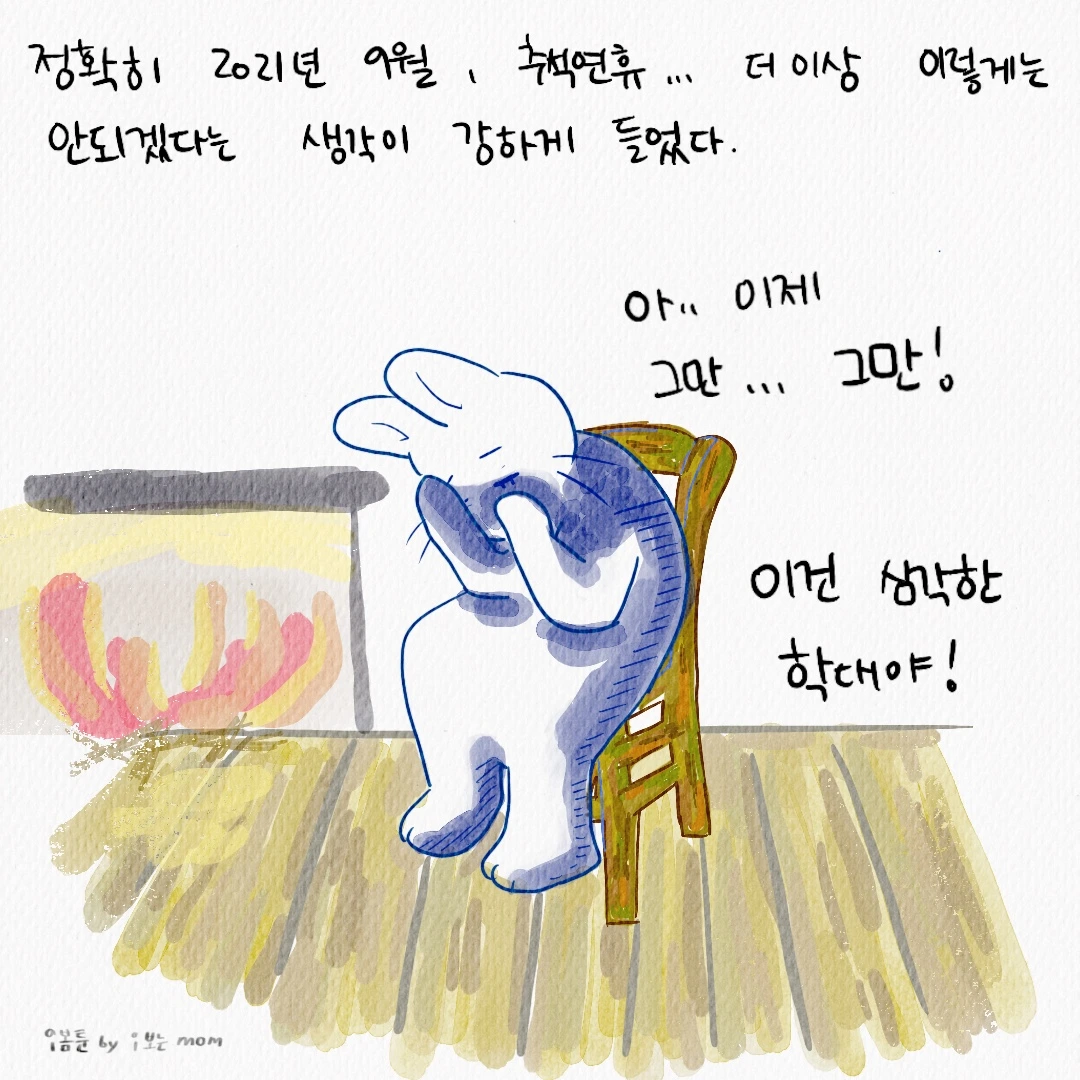 정확히 2021년 9월, 추석연휴... 더이상 이렇게는
안되겠다는 생각이 강하게 들었다.
아.. 이제
그만... 그만!
이건 심각한
학대야!
by 보는 mom